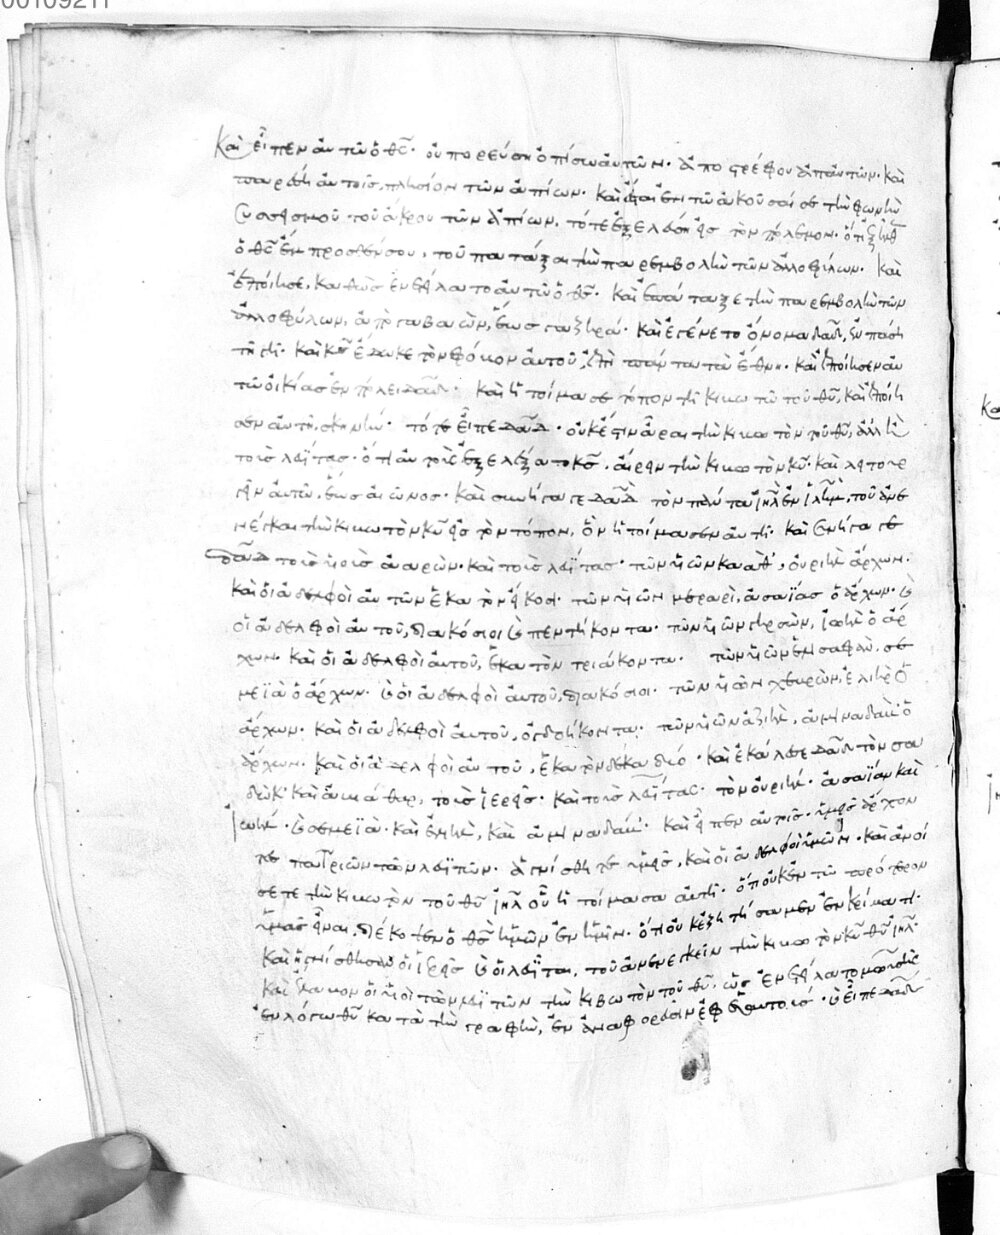 00109211
Καὶ εἶπεν αὐτῶ ὁ θς· οὐ πορεύση ὀπίσω αὐτῶν· ἀποστρέφου ἀπ' αὐτῶν· καὶ
παρέση αὐτοῖς πλησίον τῶν ἀπίων· καὶ ἔσται ἐν τῶ ἀκοῦσαί σε τὴν φωνὴν
συσσεισμοῦ τοῦ ἄκρου τῶν ἀπίων, τότε ἐξελεύση εἰς τὸν πόλεμον· ὅτι ἐξῆλθεν
ὁ θς ἔμπροσθέν σου, τοῦ πατάξαι τὴν παρεμβολὴν τῶν ἀλλοφύλων. καὶ
ἐποίησε, καθὼς ἐνετείλατο αὐτῶ ὁ θς· καὶ ἐπάταξε τὴν παρεμβολὴν τῶν
ἀλλοφύλων, ἀπὸ γαβαὼν, ἕως γαζηρά· καὶ ἐγένετο ὄνομα δαδ, ἐν πάση
τῆ γῆ· καὶ κς ἔδωκε τὸν φόβον αὐτοῦ, ἐπὶ πάντα τὰ ἔθνη· καὶ ἐποίησεν αὐ
τῶ οἰκίας ἐν πόλει δαδ· καὶ ἡτοίμασε τόπον τῆ κιβωτῶ τοῦ θυ, καὶ ἐποίη
σεν αὐτῆ, σκηνήν· τότε εἶπε δαδ· οὐκ ἔστιν ἆραι τὴν κιβωτὸν τοῦ θυ, ἀλλ' ἢ
τοὺς λευΐτας· ὅτι αὐτοὺς ἐξελέξατο κς, αἴρειν τὴν κιβωτὸν κυ· καὶ λειτουρ
γεῖν αὐτῶ, ἕως αἰῶνος· καὶ συνήγαγε δαδ τὸν πάντα ιηλ ἐν ιλημ, τοῦ ἀνε
νέγκαι τὴν κιβωτὸν κυ εἰς τὸν τόπον, ὃν ἡτοίμασεν αὐτῆ· καὶ συνήγαγε
δαδ τοὺς υἱοὺς ἀαρών· καὶ τοὺς λευΐτας· τῶν υἱῶν καάθ, οὐριὴλ ἄρχων·
καὶ οἱ ἀδελφοὶ αὐτῶν ἑκατὸν εἴκοσι· τῶν υἱῶν μεραρὶ, ἀσαΐας ὁ ἄρχων· καὶ
οἱ ἀδελφοὶ αὐτοῦ, διακόσιοι καὶ πεντήκοντα· τῶν υἱῶν γηρσὼν, ἰωὴλ ὁ ἄρ
χων· καὶ οἱ ἀδελφοὶ αὐτοῦ, ἑκατὸν τριάκοντα· τῶν υἱῶν ἐλισαφὰν, σε
μεΐα ὁ ἄρχων· καὶ οἱ ἀδελφοὶ αὐτοῦ, διακόσιοι· τῶν υἱῶν χεβρὼν, ἐλιὴρ ὁ
ἄρχων· καὶ οἱ ἀδελφοὶ αὐτοῦ, ὀγδοήκοντα· τῶν υἱῶν ὀζιὴλ, ἀμιναδὰμ ὁ
ἄρχων· καὶ οἱ ἀδελφοὶ αὐτοῦ, ἑκατὸν δέκα δύο· καὶ ἐκάλεσε δαδ τὸν σα
δώκ· καὶ ἀβιάθαρ, τοὺς ἱερεῖς· καὶ τοὺς λευΐτας· τὸν οὐριήλ· ἀσαΐαν καὶ
ἰωήλ· καὶ σεμεΐαν· καὶ ἐλιὴλ, καὶ ἀμιναδάμ· καὶ εἶπεν αὐτοῖς· ὑμεῖς ἄρχον
τες πατριῶν τῶν λευϊτῶν· ἁγνίσθητε ὑμεῖς, καὶ οἱ ἀδελφοὶ ὑμῶν· καὶ ἀνοί
σετε τὴν κιβωτὸν τοῦ θυ ιηλ οὗ ἡτοίμασα αὐτῆ· ὅτι οὐκ ἐν τῶ πρότερον
ὑμᾶς εἶναι, διέκοψεν ὁ θς ἡμῶν ἐν ἡμῖν· ὅτι οὐκ ἐζητήσαμεν ἐν κρίματι·
καὶ ἡγνίσθησαν οἱ ἱερεῖς καὶ οἱ λευῖται, τοῦ ἀνενεγκεῖν τὴν κιβωτὸν κυ θυ ιηλ·
καὶ ἔλαβον οἱ υἱοὶ τῶν λευϊτῶν τὴν κιβωτὸν τοῦ θυ, ὡς ἐνετείλατο μωσῆς
ἐν λόγω θυ κατὰ τὴν γραφὴν, ἐν ἀναφορεῦσιν ἐφ' ἑαυτούς· καὶ εἶπε δαδ